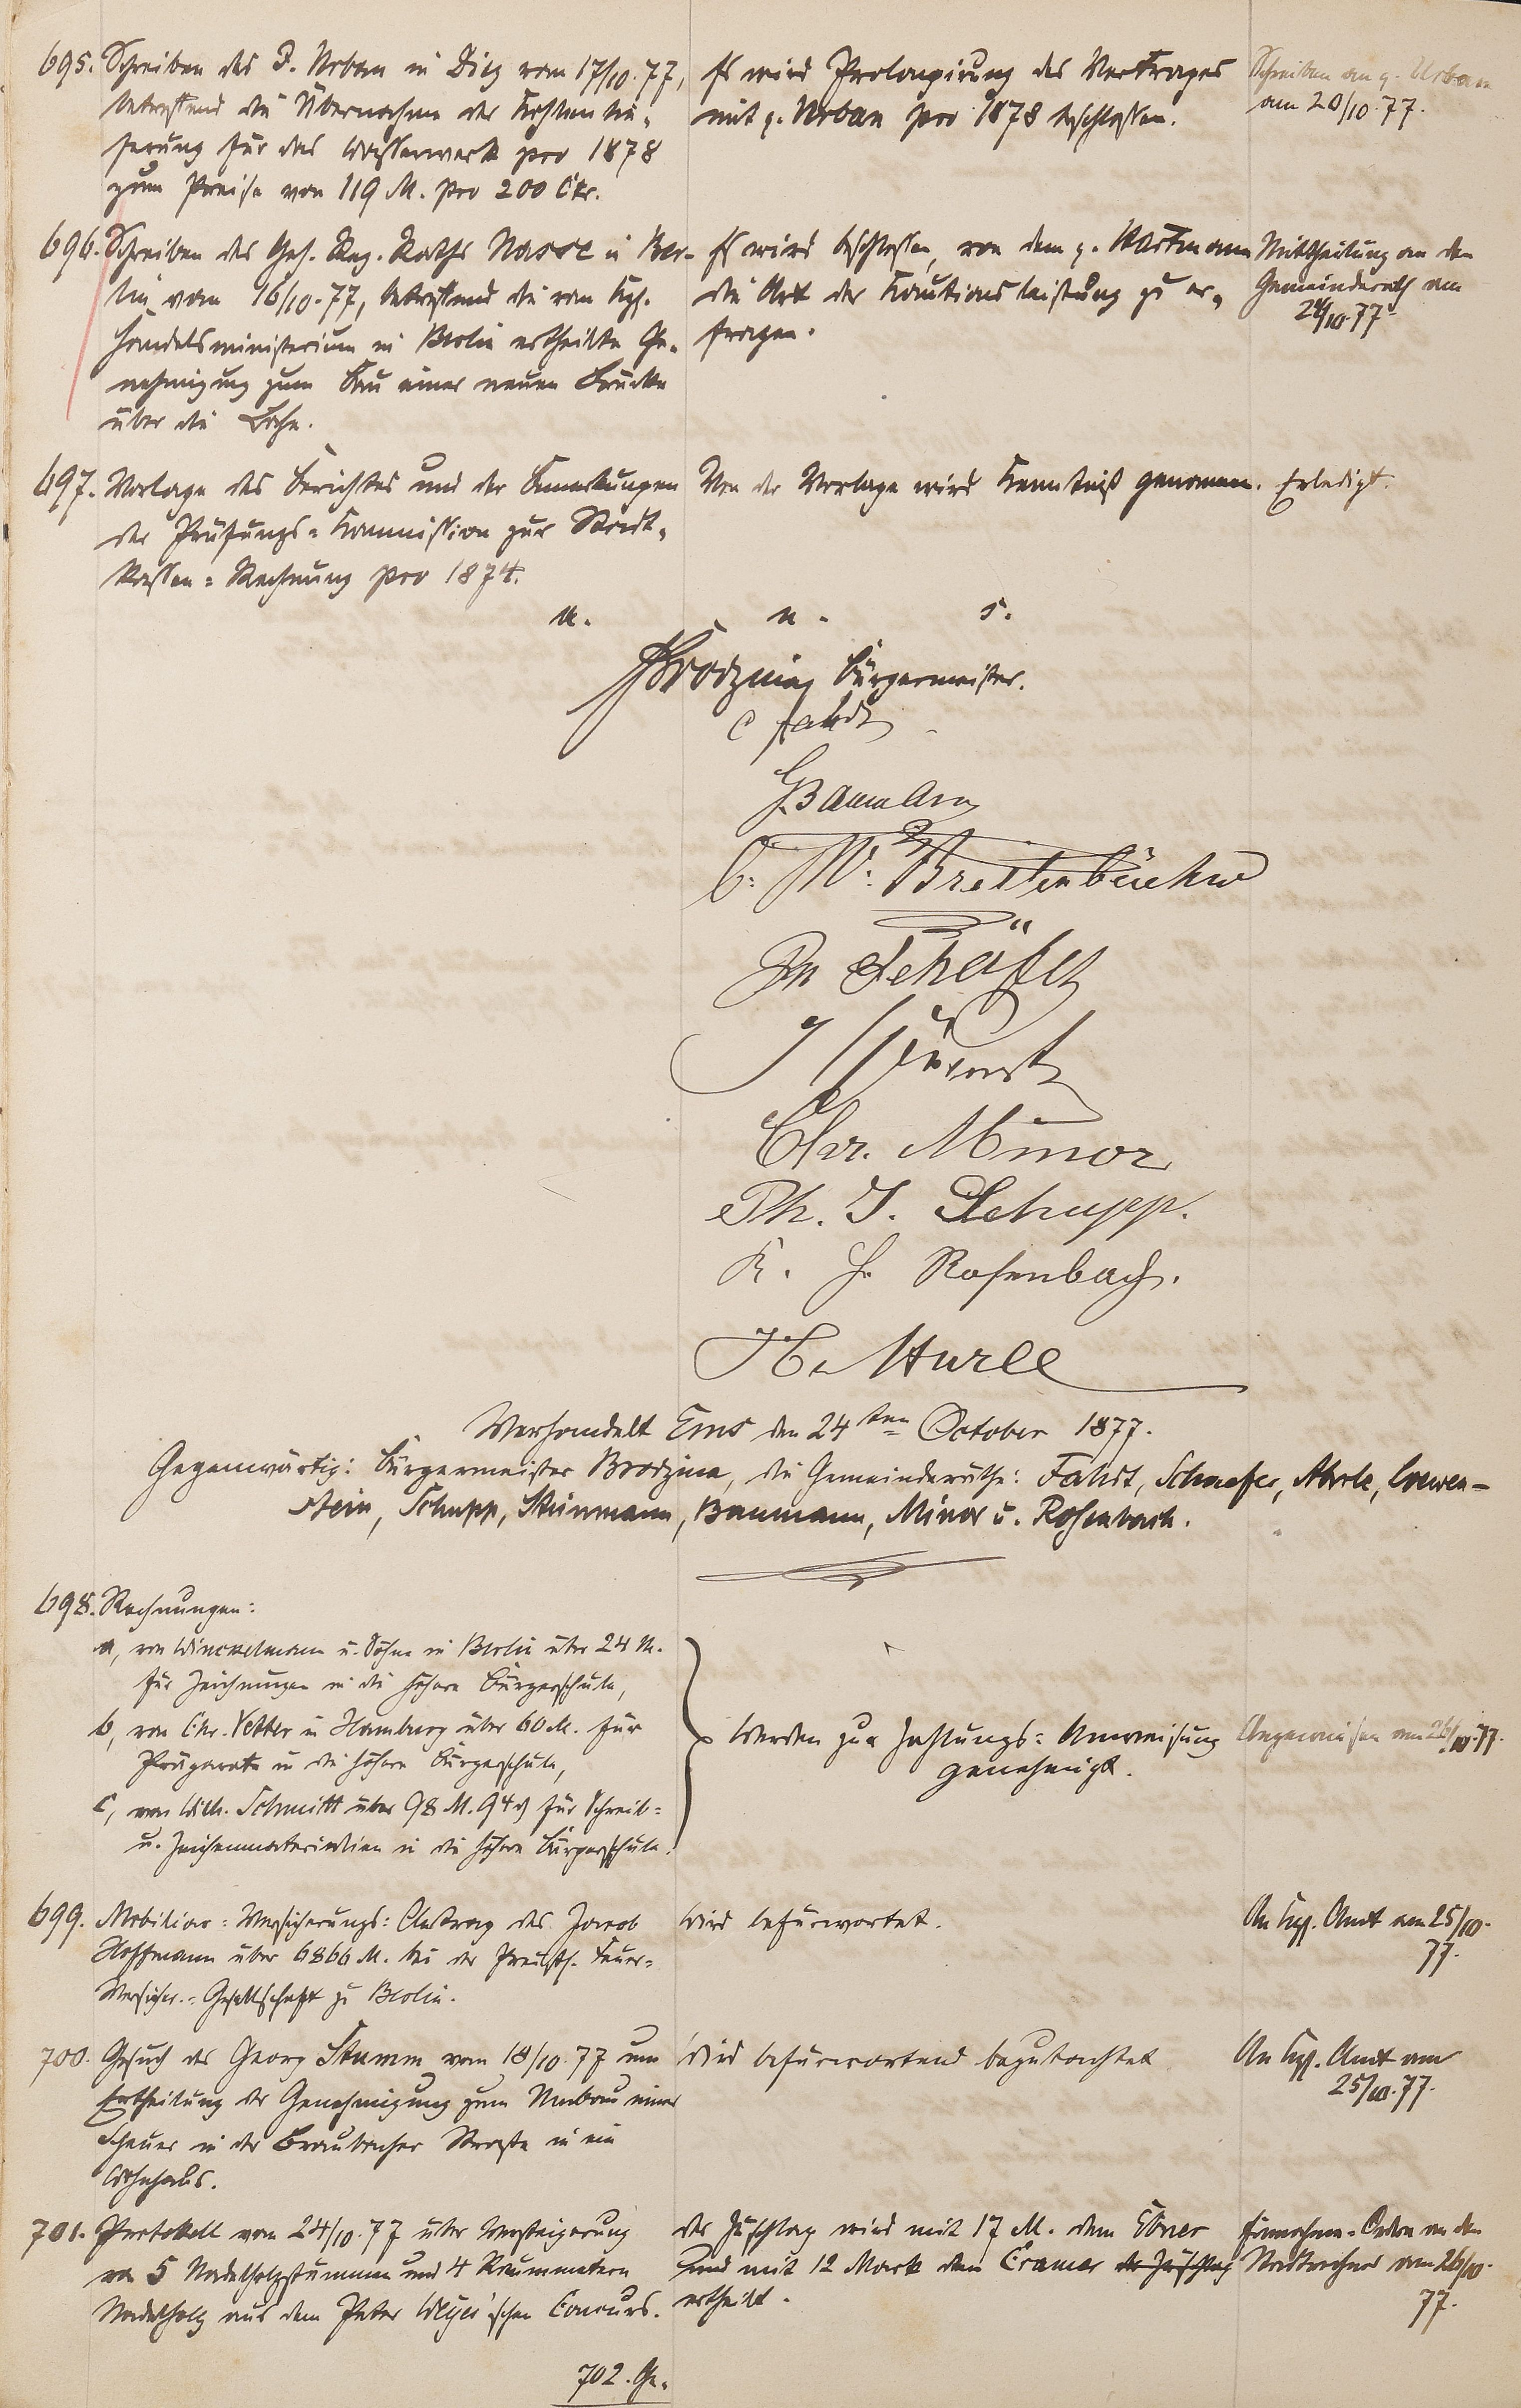 695. Schreiben des P. Urban in Diez vom 17/10. 77,
betreffend die Übernahme der Kohlenlie-
ferung für das Wasserwerk pro 1878
zum Preise von 119 M. pro 200 Ctr.
Es wird Prolongirung des Vertrages
mit p. Urban pro 1878 beschlossen.
Schreiben an p. Urban
am 20/10. 77.
696. Schreiben des Geh. Reg. Raths Nasse in Ber-
lin vom 16/10. 77, betreffend die vom Kgl.
Handelsministerium in Berlin ertheilte Ge-
nehmigung zum Bau einer neuen Brücke
über die Lahn.
Es wird beschlossen, von dem p.
die Art der Kautionsleistung zu er-
fragen.
Mittheilung an den
Gemeinderath am
24/10. 77.
697. Vorlage des Berichtes und der Bemerkungen
der Prüfungs-Kommission zur Stadt-
kassen-Rechnung pro 1874.
Von der Vorlage wird Kenntniß genommen.
Erledigt.
u. n. s.
Brodzina Bürgermeister.
C Fahdt
Baumann
C. W. Breitenbücher
Ph Schäfer
Chr. Minor
Ph. J. Schupp.
K. H. Rosenbach.
Verhandelt Ems den 24ten October 1877.
Gegenwärtig: Bürgermeister Brodzina, die Gemeinderäthe: Fahdt, Schaefer, Aherle, Loewen-
stein, Schupp, Steinmann, Baumann, Minor u. Rosenbach.
698. Rechnungen:
a, von Winckelmann u. Söhne in Berlin über 24 M.
für Zeichnungen in die höhere Bürgerschule,
b, von Chr. Vetter in Hamburg über 60 M. für
Präparate in die höhere Bürgerschule,
c, von Wilh. Schmitt über 98 M. 94 ₰ für Schreib-
u. Zeichenmaterialien in die höhere Bürgerschule.
Werden zur Zahlungs-Anweisung
genehmigt.
Angewiesen am 26/10. 77.
699. Mobiliar-Versicherungs-Antrag des Jacob
Hoffmann über 6866 M. bei der Preußisch. Feuer-
Versicher.-Gesellschaft zu Berlin.
Wird befürwortet.
An Kgl. Amt am 25/10.
77.
700. Gesuch des Georg Stamm vom 18/10. 77 um
Ertheilung der Genehmigung zum Umbau einer
Scheuer in der Braubacher Straße in ein
Wohnhaus.
Wird befürwortend begutachtet
An Kgl. Amt am
25/10. 77.
701. Protokoll vom 24/10. 77 über Versteigerung
von 5 Nadelholzstämmen und 4 Raummetern
Nadelholz aus dem Peter Weyer'schen Concurs.
der Zuschlag wird mit 17 M. dem Ebner
und mit 12 Mark dem Cramer der Zuschlag
ertheilt.
Einnahme-Ordre an den
Stadtrechner am 26/10.
77.
702. Ge-